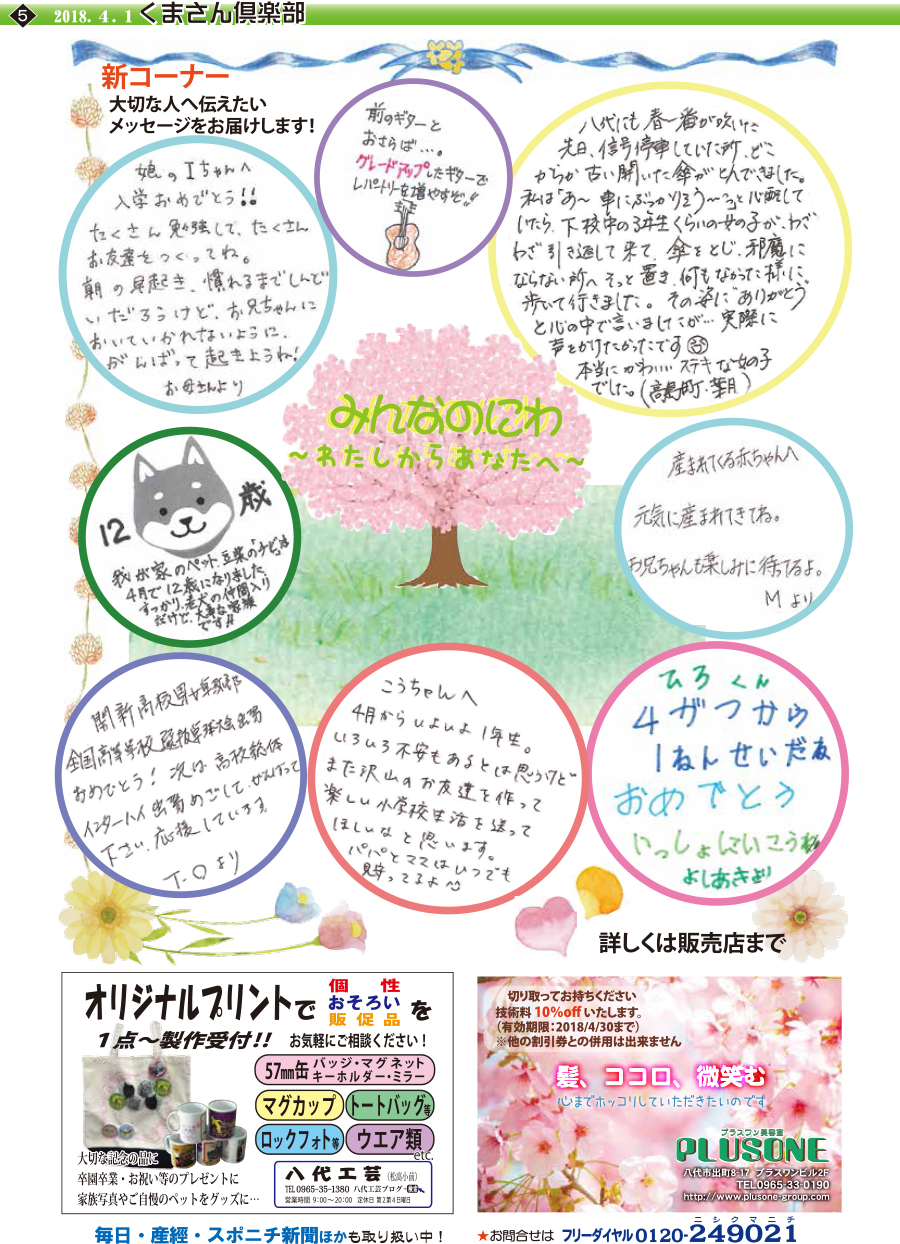 5
2018. 4. 1 くまさん倶楽部
新コーナー
大切な人へ伝えたい
メッセージをお届けします！
娘のIちゃんへ
入学おめでとう!!
たくさん勉強して、たくさん
お友達をつくってね。
朝の早起き、慣れるまでしんど
いだろうけど、お兄ちゃんに
おいていかれないように、
がんばって起きようね!
お母さんより
前のギターと
おさらば…。
グレードアップしたギターで
レパートリーを増やすぞ!!
八代にも春一番が吹いた
先日、信号停車していた所、どこ
からか古い開いた傘がとんできました。
私は「あ〜車にぶっかりそう〜」と心配して
いたら、下校中の3年生くらいの女の子が、わざ
わざ引き返して来て、傘をとじ、邪魔に
ならない所へそっと置き、何もなかった様に、
歩いて行きました。その姿に"ありがとう"
と心の中で言いましたが…実際に
声をかけたかったです
本当にかわいい ステキな女の子
でした。(高島町・葉月)
みんなのにわ
〜わたしからあなたへ〜
12歳
我が家のペット、豆柴の「チビ」は
4月で12歳になりました。
すっかり老犬の仲間入り
だけど、大事な家族
です!!
産まれてくる赤ちゃんへ
元気に産まれてきてね。
お兄ちゃんも楽しみに待ってるよ。
Mより
開新高校男女
全国高等学校選抜大会出場
おめでとう！次は高校総体
インターハイ出場めざして、がんばって
下さい。応援しています。
T・Oより
こうちゃんへ
4月からいよいよ1年生。
いろいろ不安もあるとは思うけど
また沢山のお友達を作って
楽しい小学校生活を送って
ほしいなと思います。
パパとママはいつでも
見守ってるよ
ひろくん
4がつから
1ねんせいだね
おめでとう
いっしょにいこうね
よしあきより
詳しくは販売店まで
オリジナルプリントで 個性 おそろい 販促品 を
1点〜製作受付!! お気軽にご相談ください！
57mm缶 バッジ・マグネット
キーホルダー・ミラー
マグカップ トートバッグ等
ロックフォト等 ウエア類
etc.
大切な記念の品に
卒園卒業・お祝い等のプレゼントに
家族写真やご自慢のペットをグッズに…
八代工芸 (松高小前)
TEL0965-35-1380 八代工芸ブログ 検索
営業時間 9:00〜20:00 定休日 第2第4日曜日
切り取ってお持ちください
技術料 10%off いたします。
（有効期限：2018/4/30まで）
※他の割引券との併用は出来ません
髪、ココロ、微笑む
心までホッコリしていただきたいのです
プラスワン美容室
PLUSONE
八代市出町8-17 プラスワンビル2F
TEL0965-33-0190
http://www.plusone-group.com/
毎日・産經・スポニチ新聞ほかも取り扱い中！
★お問合せは フリーダイヤル0120-249021
ニシクマニチ